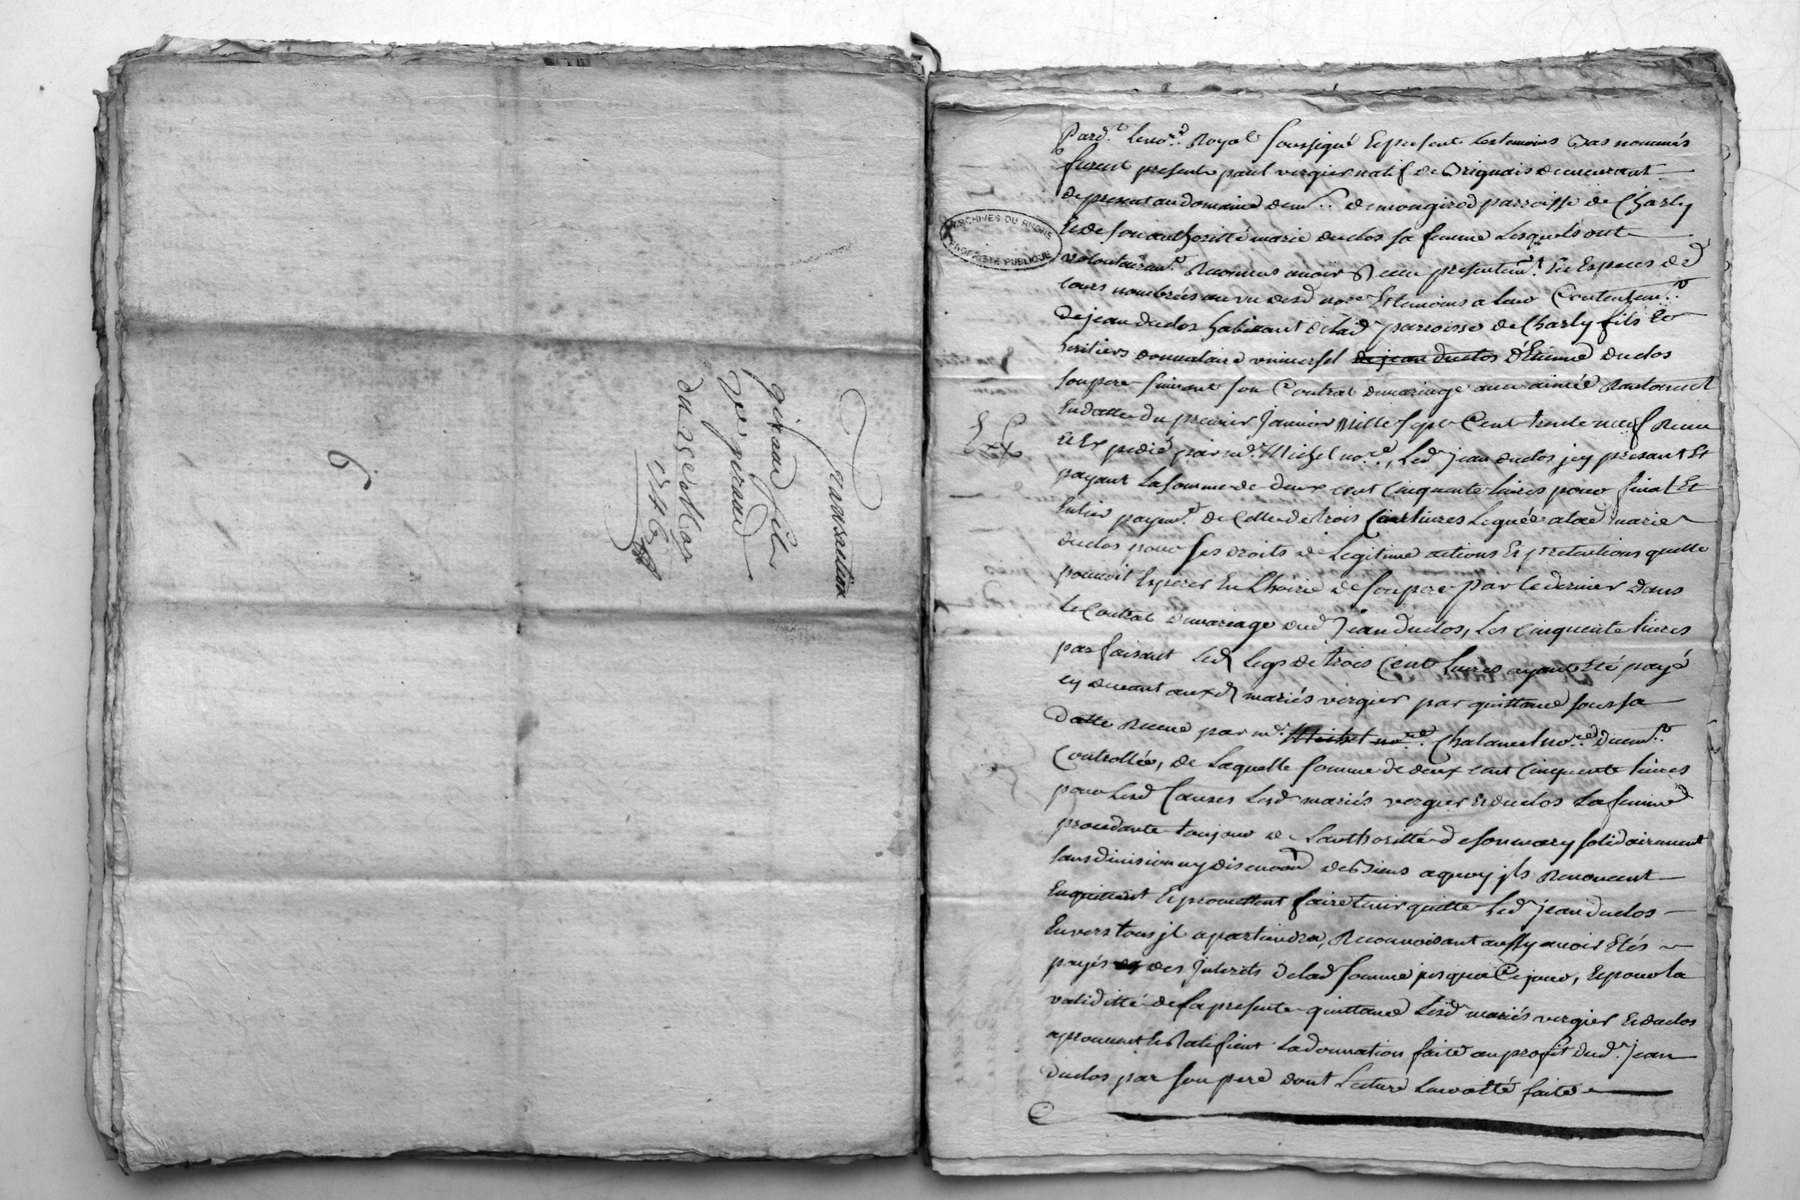 Transaction
giraud fils
et giraud
du 25e 8bre
1746
6
ARCHIVES DU RHONE
PROPRIETE PUBLIQUE
Pard.t le no.re Royal soussigné Et present les temoins bas nommés
furent presents paul vergier natif de Brignais demeurant
de present au domaine de m.r de mongirod parroisse de Charly
Et de son authoritté marie duclos sa femme Lesquels ont
volontairem.t Reconnus avoir Receu presentem.t En Especes de
cours nombrées au vu dud no.re Et temoins a leur Contentem.t
De jean duclos habitant de lad parroisse de Charly fils Et
heritiers donnataire universel de jean duclos d'Etienne duclos
son pere suivant son Contrat de mariage avec aimée
En datte du premier Janvier Mille Sept Cent trente neuf Receu
Et Expedié par m.e Michel no.re, Led jean duclos jcy present Et
payant La somme de deux cent Cinquante livres pour final Et
Entier payem.t de Celle de trois Cent livres Leguée a lad marie
duclos pour ses droits de Legitime actions Et pretentions quelle
pouvoit Esperer En Lhoirie de son pere par ce dernier dans
le Contrat de mariage dud Jean duclos, Les cinquante livres
parfaisant led legs de trois Cent livres ayant Eté payé
cy devant auxd mariés vergier par quittance sous sa
datte Receue par m.e Michel no.re Chalanel no.re duem.t
Controllée, de Laquelle somme de deux cent Cinquante livres
pour Lesd Causes Lesd mariés vergier Et duclos La femme
procedante toujour de Lauthoritté de son mary solidairement
sans division ny discution de biens a quoy jls Renoncent
En quittent Et promettent faire tenir quitte Led jean duclos
Envers tous jl apartiendra, Reconnoissant aussy avoir Etés
payés de des Interets de lad somme jusqua Ce jour, Et pour la
validitté de la presente quittance Lesd mariés vergier Et duclos
aprouvent Et Ratifient La donnation faite au profit dud. Jean
Duclos par son pere dont Lecture leur a Eté faite